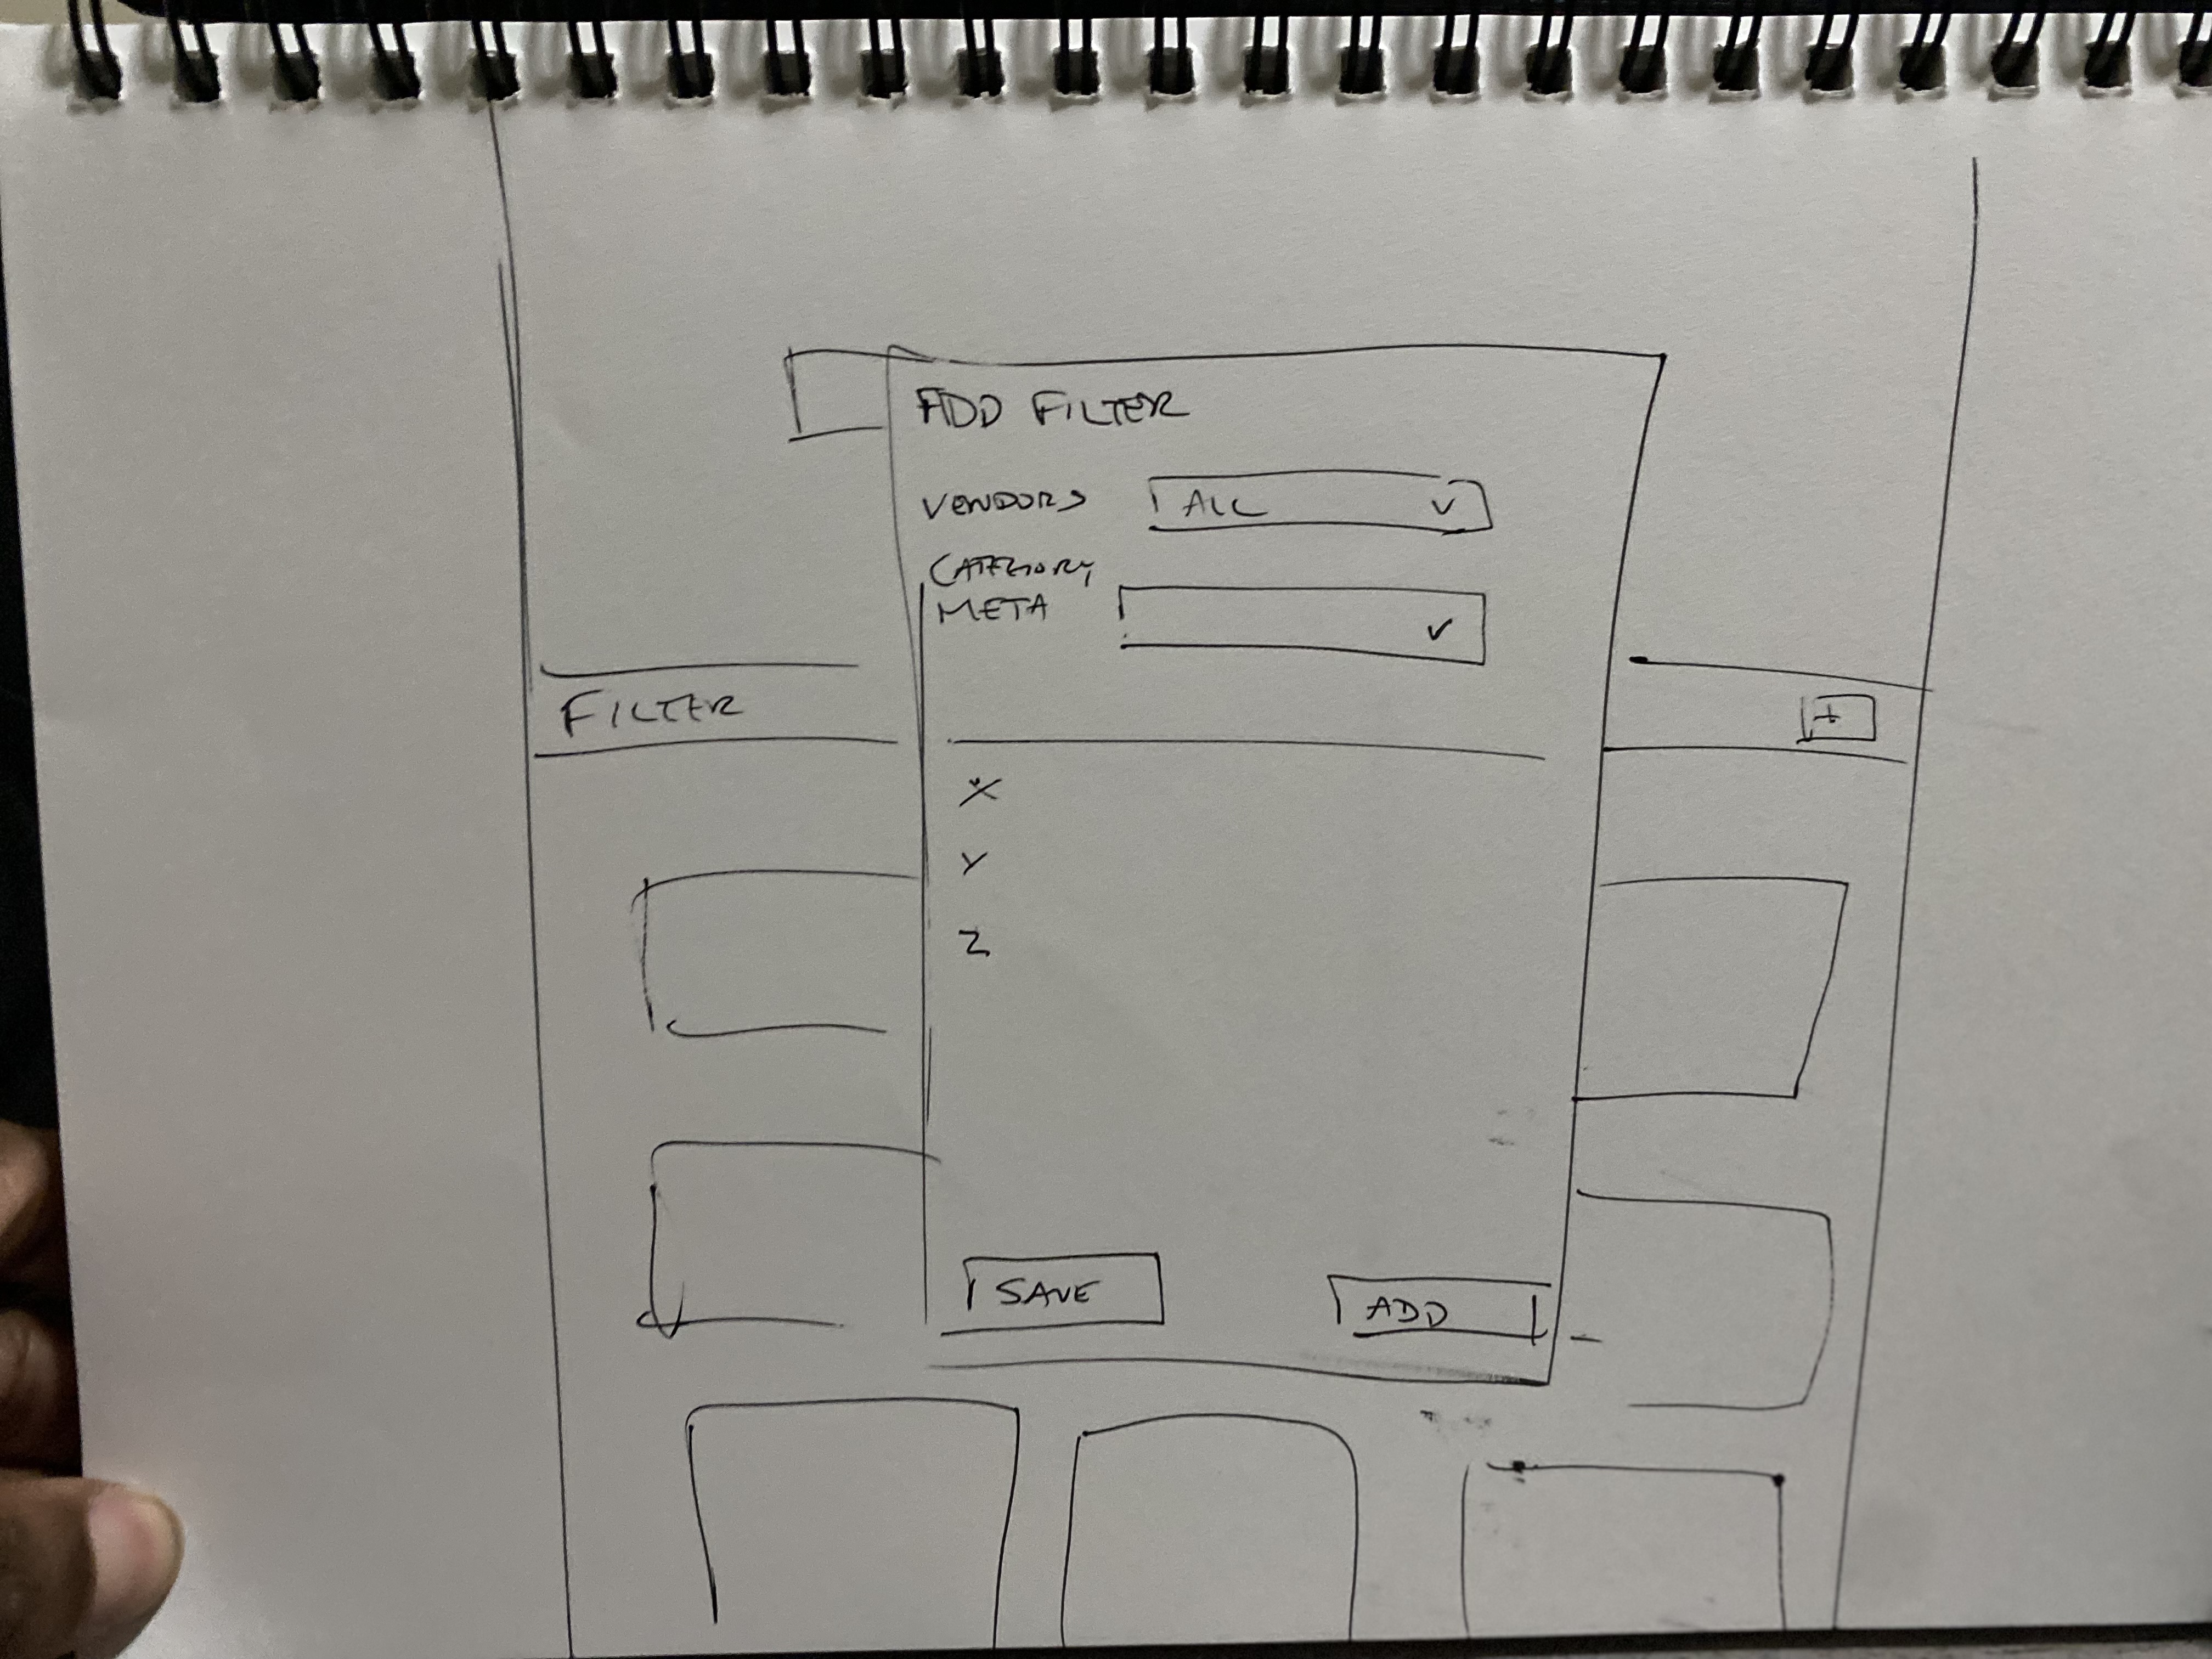 ADD FILTER
VENDORS ALL
CATEGORY
META
FILTER +
X
Y
Z
SAVE ADD